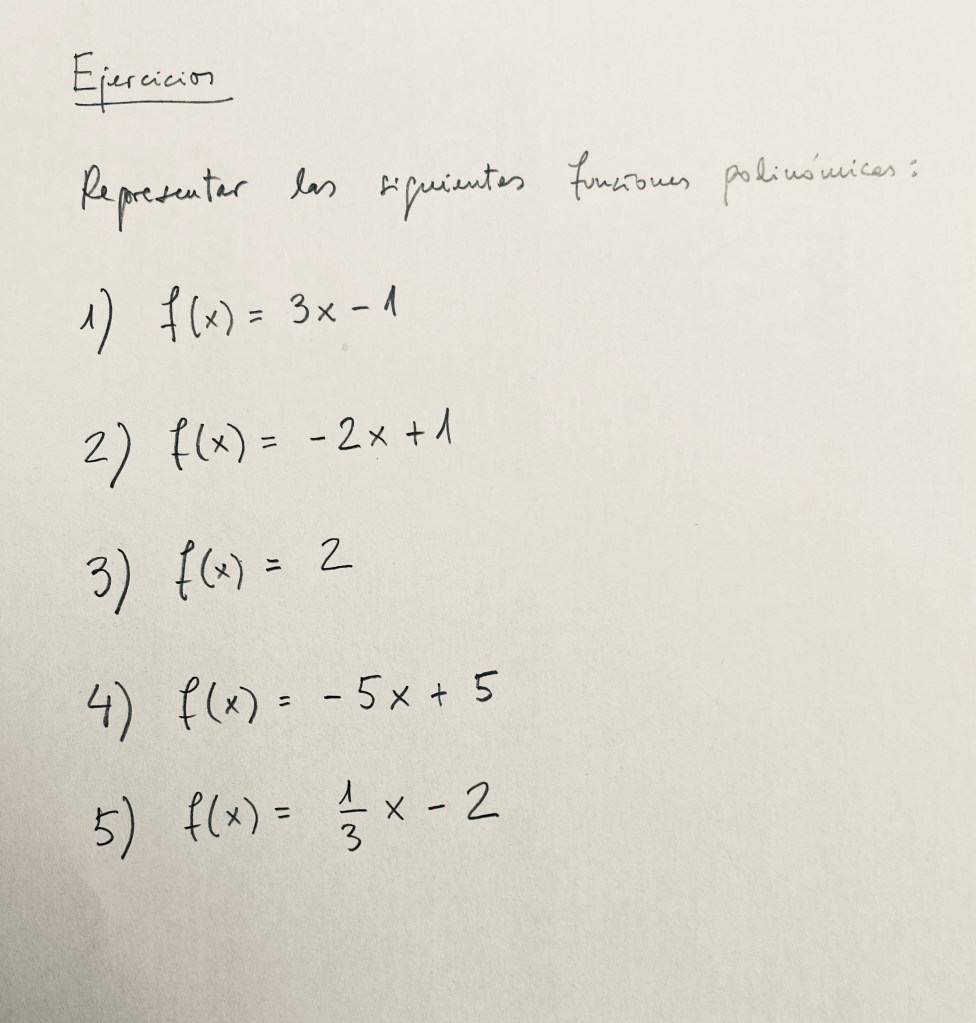 Ejercicios
Representar las siguientes funciones polinómicas:
1) f(x) = 3x - 1
2) f(x) = -2x + 1
3) f(x) = 2
4) f(x) = -5x + 5
5) f(x) = 1/3 x - 2